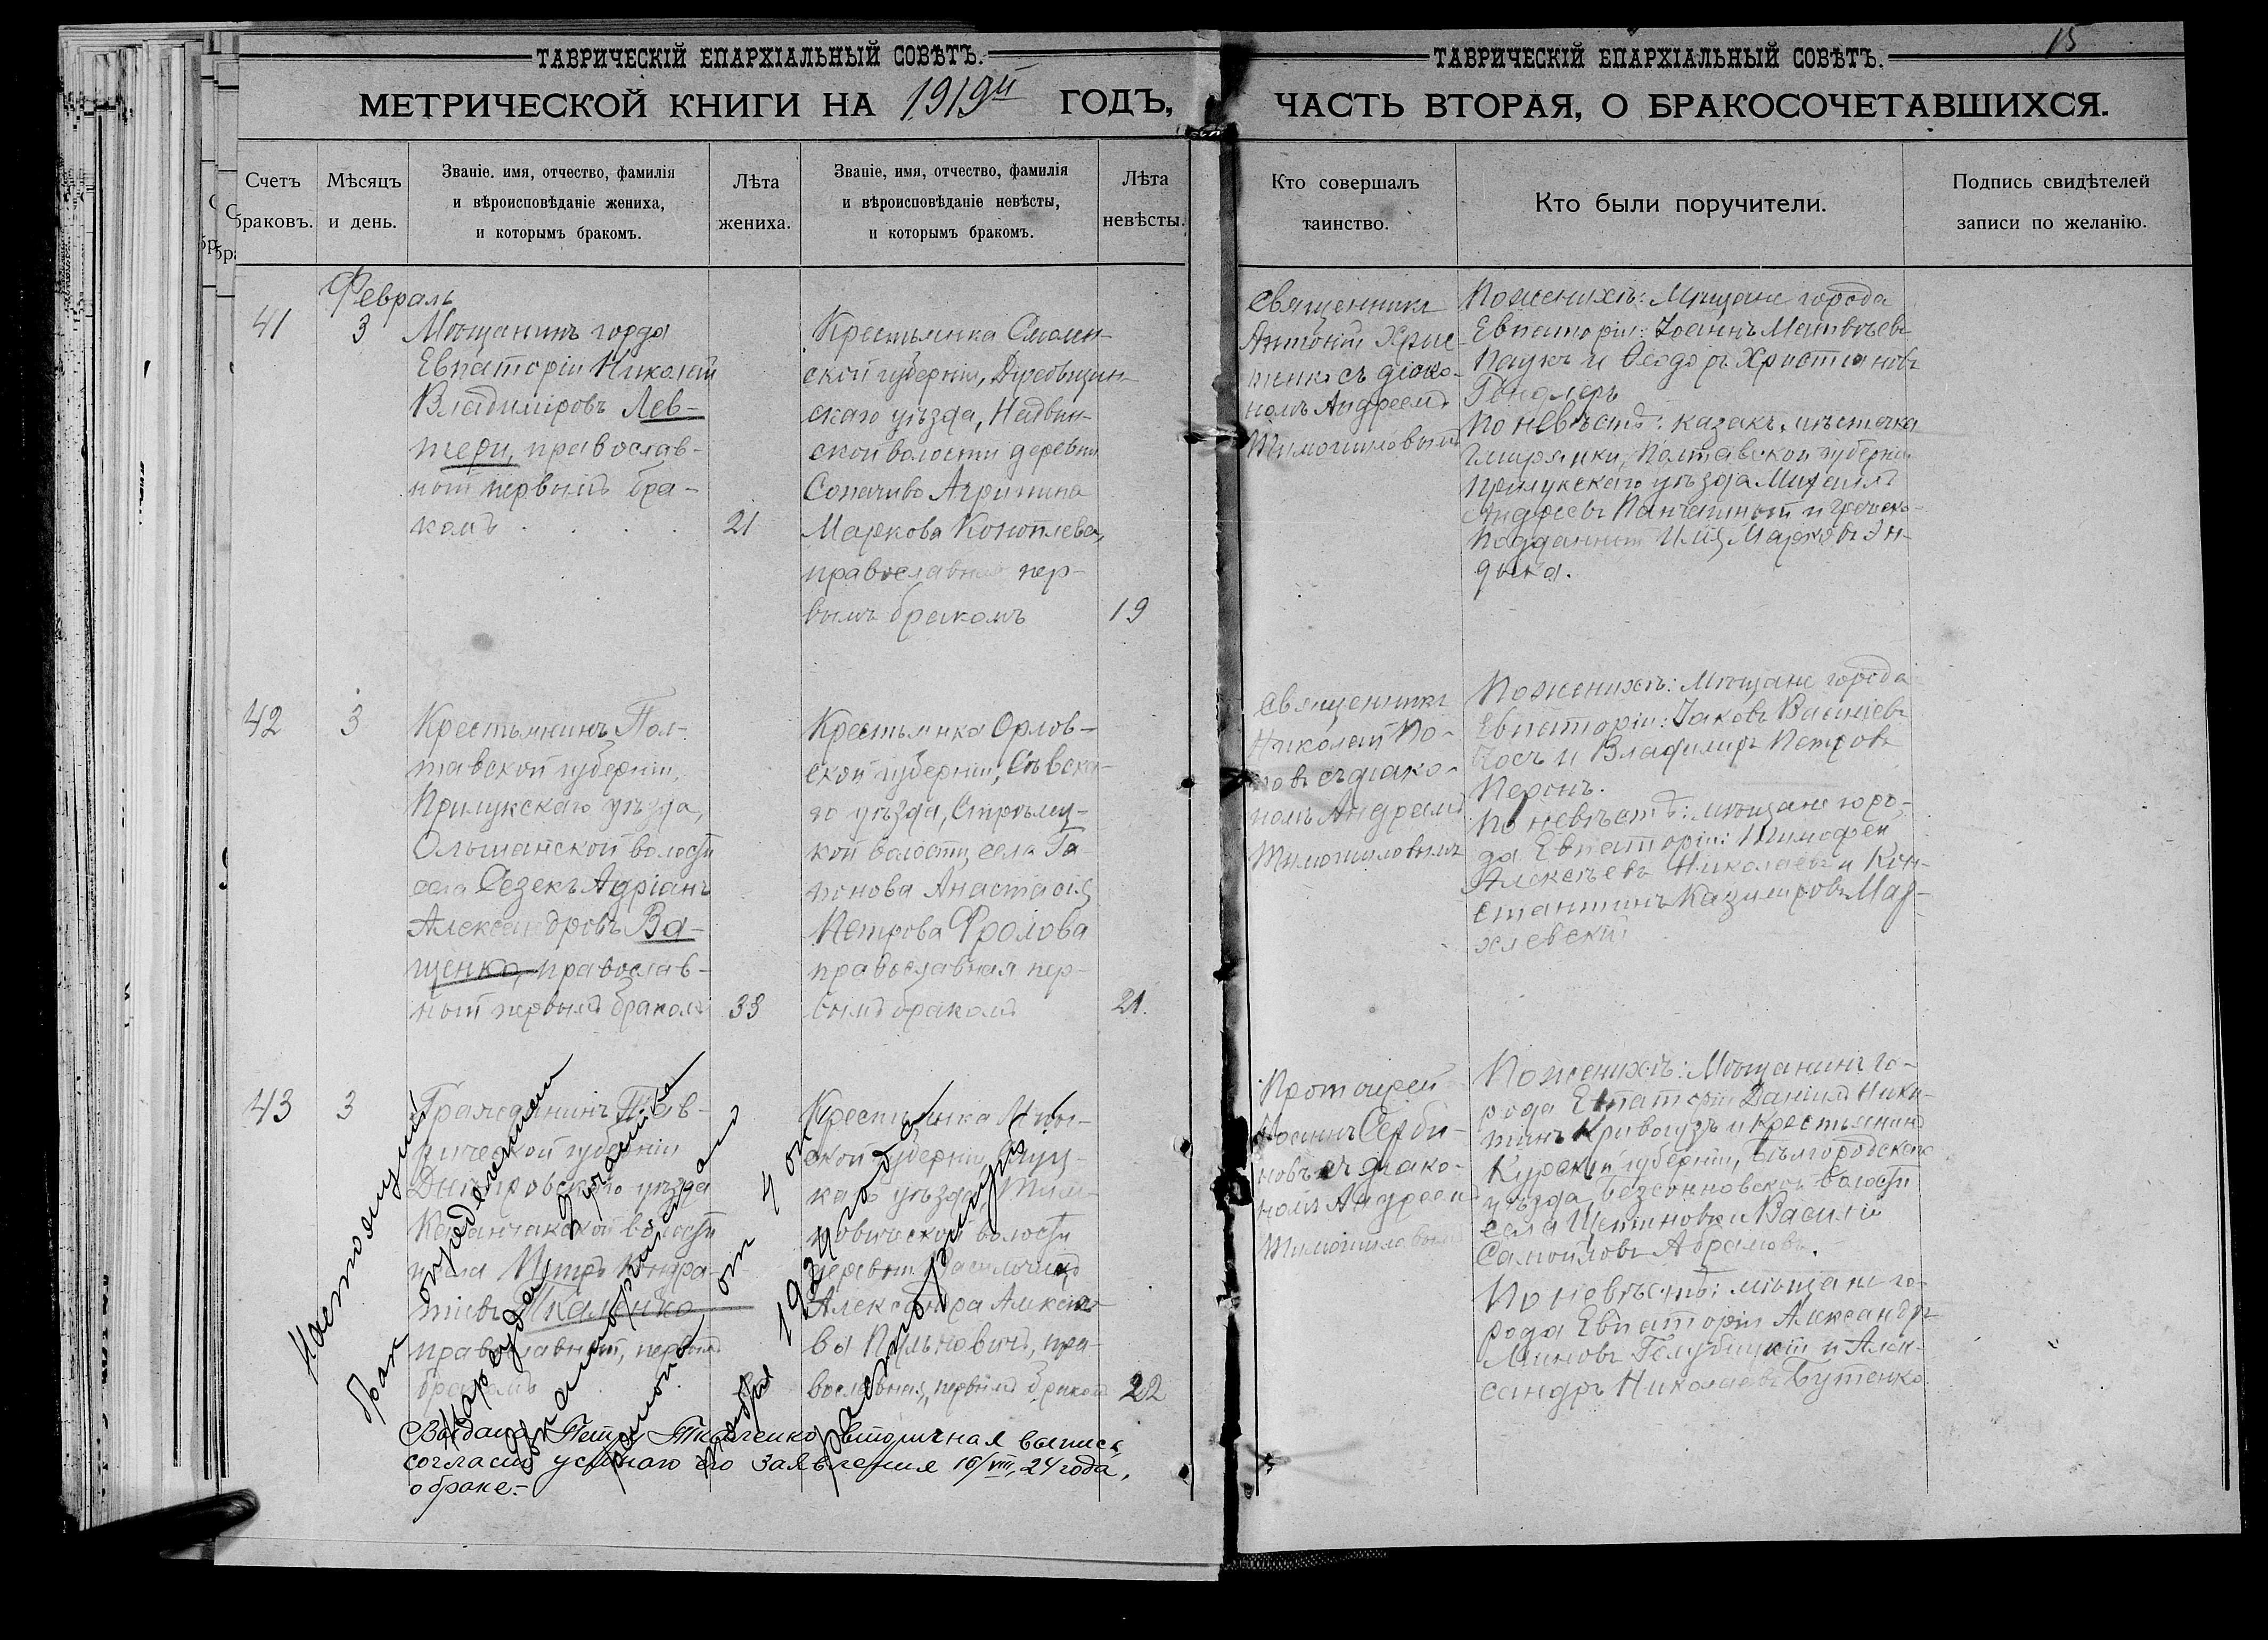 ТАВРИЧЕСКІЙ ЕПАРХІАЛЬНЫЙ СОВѢТЪ.
МЕТРИЧЕСКОЙ КНИГИ НА 1919й ГОДЪ,
Счетъ
браковъ.
Мѣсяцъ
и день.
Званіе. имя, отчество, фамилія
и вѣроисповѣданіе жениха,
и которымъ бракомъ.
Лѣта
жениха.
Званіе, имя, отчество, фамилія
и вѣроисповѣданіе невѣсты,
и которымъ бракомъ.
Лѣта
невѣсты.
ТАВРИЧЕСКІЙ ЕПАРХІАЛЬНЫЙ СОВѢТЪ.
15
ЧАСТЬ ВТОРАЯ, О БРАКОСОЧЕТАВШИХСЯ.
Кто совершалъ
таинство.
Кто были поручители.
Подпись свидѣтелей
записи по желанію.
Февраль
41
3
Мѣщанинъ горда
Евпаторіи Николай
Владиміровъ Лев-
тери, православ-
ный первымъ бра-
комъ
21
Крестьянка Смолен-
ской губерніи, Духовщин-
скаго уѣзда,
ской волости деревни
Сопачиво Агрипина
Маркова Коноплева,
православная пер-
вымъ бракомъ
19
Священникъ
Антоній
съ діако-
номъ Андреемъ
Тимошиловымъ
По женихѣ: Мѣщане города
Евпаторіи: Іоаннъ Матвѣевъ
Паукъ и Ѳеодоръ Христіановъ
По невѣстѣ: казакъ мѣстечка
Полтавской губерніи
Прилукскаго уѣзда Михаилъ
Андреевъ и греческо-
подданный Илія Марковъ Эн-
дыка.
42
3
Крестьянинъ Пол-
тавской губерніи,
Прилукскаго уѣзда,
Ольшанской волости
села Сезекъ Адріанъ
Александровъ Ва-
щенко, православ-
ный первымъ бракомъ
33
Крестьянка Орлов-
ской губерніи, Сѣвска-
го уѣзда, Стрѣлец-
кой волости, села Га-
понова Анастасія
Петрова Фролова
православная пер-
вымъ бракомъ
21.
Священникъ
Николай По-
повъ съ діако-
номъ Андреемъ
Тимошиловымъ
По женихѣ: Мѣщане города
Евпаторіи: Іаковъ Василіевъ
и Владиміръ Петровъ
Перонъ.
По невѣстѣ: мѣщане горо-
да Евпаторіи: Тимофей
Алексѣевъ Николаевъ и Кон-
стантинъ Казимировъ Мар-
хлевскій
43
3
Гражданинъ Тав-
рической губерніи
Днѣпровскаго уѣзда
волости
Петръ Кондра-
тіевъ Ткаченко
православный, первымъ
бракомъ
Крестьянка
ской губерніи,
каго уѣзда,
новической волости
деревни
Александра Алексѣе-
ва пра-
вославная, первымъ бракомъ
22
Протоіерей
Іоаннъ Серби-
новъ съ діако-
номъ Андреемъ
Тимошиловымъ
По женихѣ: Мѣщанинъ го-
рода Евпаторіи Даніилъ Ники-
тинъ Кривогузъ и Крестьянинъ
Курской губерніи, Бѣлгородскаго
уѣзда, Безсоновской волости
села Щетиновки Василій
Самойловъ Абрамовъ.
По невѣстѣ: мѣщане го-
рода Евпаторіи Александръ
Миновъ Голубицкій и Алек-
сандръ Николаевъ Бутенко.
Настоящий
брак определением
Нарсуда
от 4 ок
тября 1924 года
расторгнут
Выдана Петру Ткаченко вторичная выпись
согласно устнаго его заявления 16/VIII, 24 года,
о браке.-